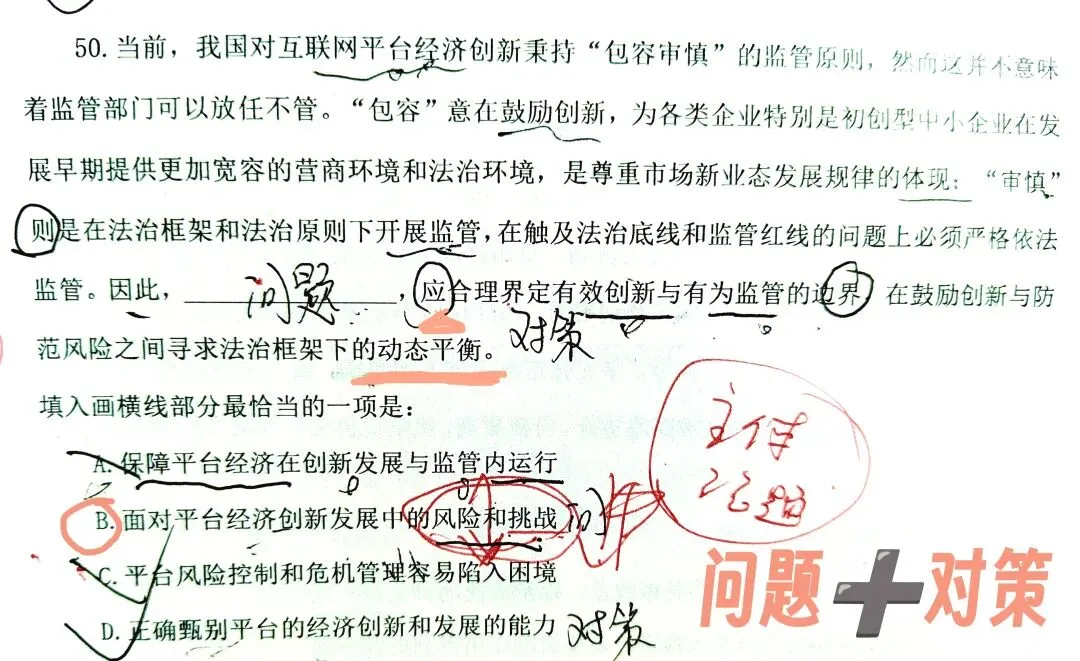 50. 当前，我国对互联网平台经济创新秉持“包容审慎”的监管原则，然而这并不意味
着监管部门可以放任不管。“包容”意在鼓励创新，为各类企业特别是初创型中小企业在发
展早期提供更加宽容的营商环境和法治环境，是尊重市场新业态发展规律的体现；“审慎”
则是在法治框架和法治原则下开展监管，在触及法治底线和监管红线的问题上必须严格依法
监管。因此，____________________，应合理界定有效创新与有为监管的边界，在鼓励创新与防
问题
范风险之间寻求法治框架下的动态平衡。
对策
填入画横线部分最恰当的一项是：
主体
话题
A. 保障平台经济在创新发展与监管内运行
B. 面对平台经济创新发展中的风险和挑战
问
C. 平台风险控制和危机管理容易陷入困境
问题+对策
D. 正确甄别平台的经济创新和发展的能力
对策